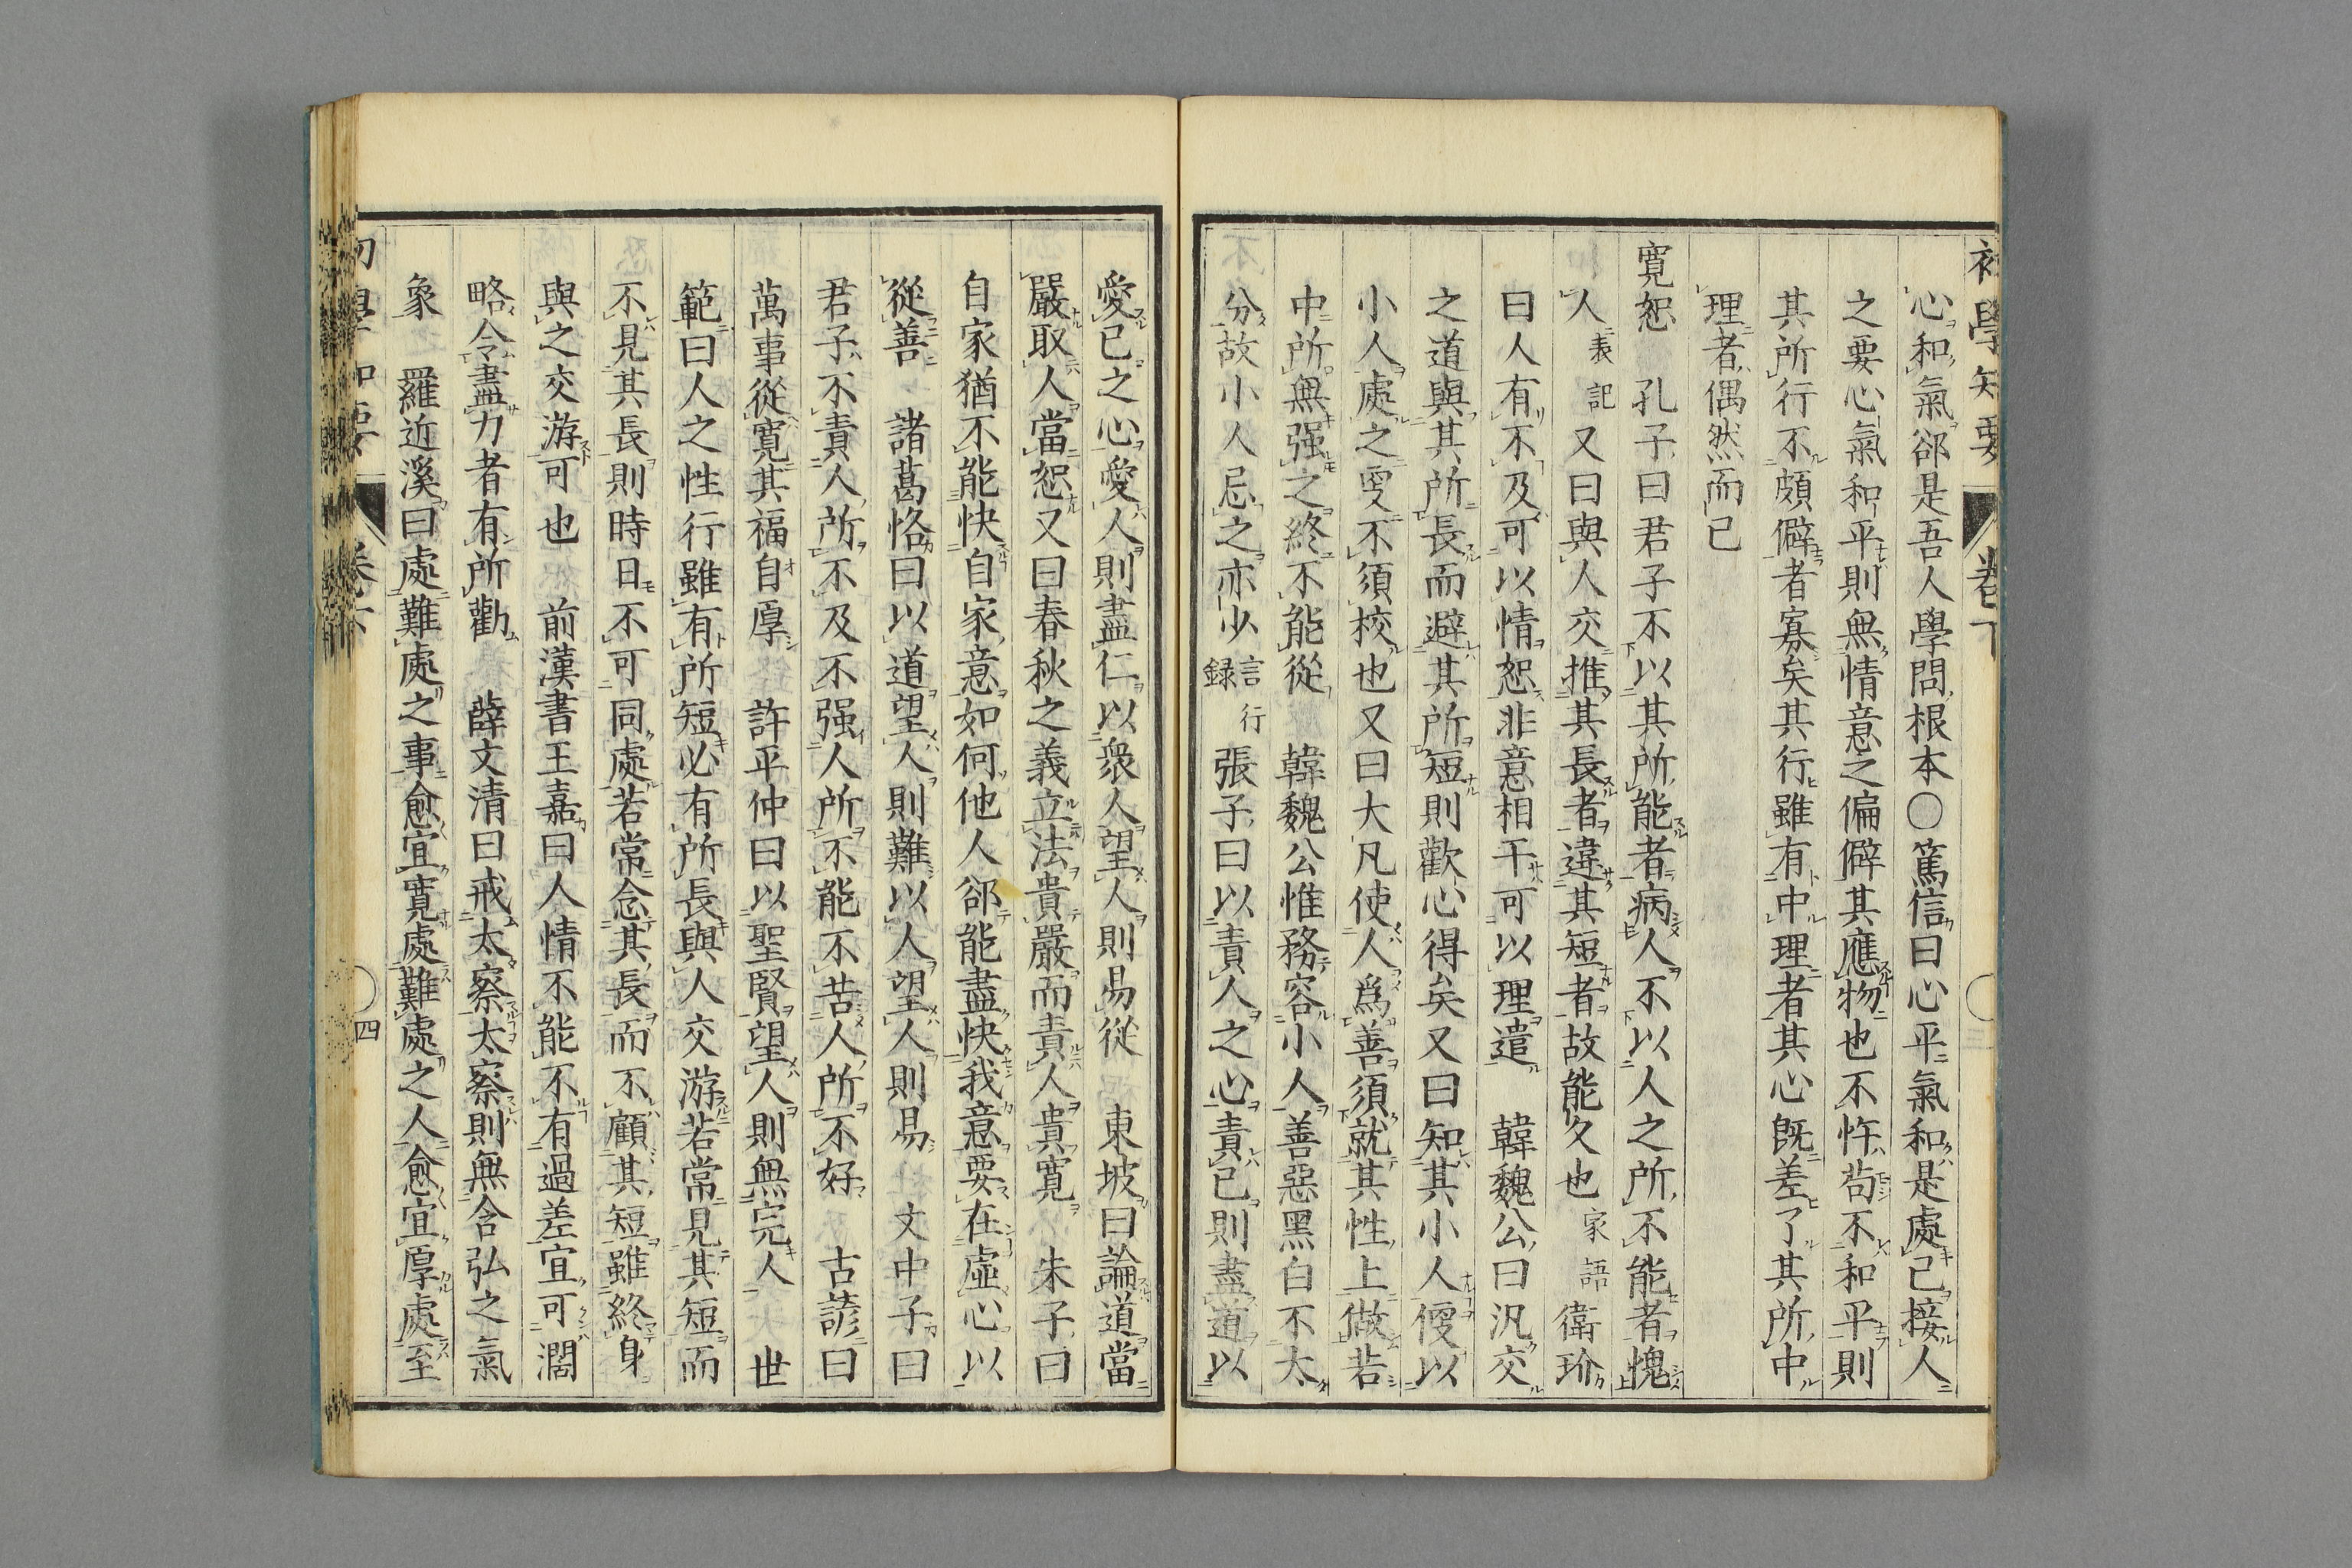 心和氣郤是吾人學問根本○篤信曰心平氣和是處己接人
之要心氣和平則無情意之偏僻其應物也不忤苟不和平則
其所行不頗僻者寡矣其行雖有中理者其心既差了其所中
理者偶然而已
寬恕　孔子曰君子不以其所能者病人不以人之所不能者愧
人表記又曰與人交推其長者違其短者故能久也家語衛玠
曰人有不及可以情恕非意相干可以理遣　韓魏公曰汎交
之道與其所長而避其所短則歡心得矣又曰知其小人儍以
小人處之更不須校也又曰大凡使人爲善須就其性上做若
中所無强之終不能從　韓魏公惟務容小人善惡黑白不太
分故小人忌之亦少言行録　張子曰以責人之心責己則盡道以
愛己之心愛人則盡仁以衆人望人則易從　東坡曰論道當
嚴取人當恕又曰春秋之義立法貴嚴而責人貴寬　朱子曰
自家猶不能快自家意如何他人郤能盡快我意要在虛心以
從善　諸葛恪曰以道望人則難以人望人則易　文中子曰
君子不責人所不及不强人所不能不苦人所不好　古諺曰
萬事從寬其福自厚　許平仲曰以聖賢望人則無完人　世
範曰人之性行雖有所短必有所長與人交游若常見其短而
不見其長則時日不可同處若常念其長而不顧其短雖終身
與之交游可也　前漢書王嘉曰人情不能不有過差宜可濶
略令盡力者有所勸　薛文清曰戒太察太察則無含弘之氣
象　羅近溪曰處難處之事愈宜寬處難處之人愈宜厚處至